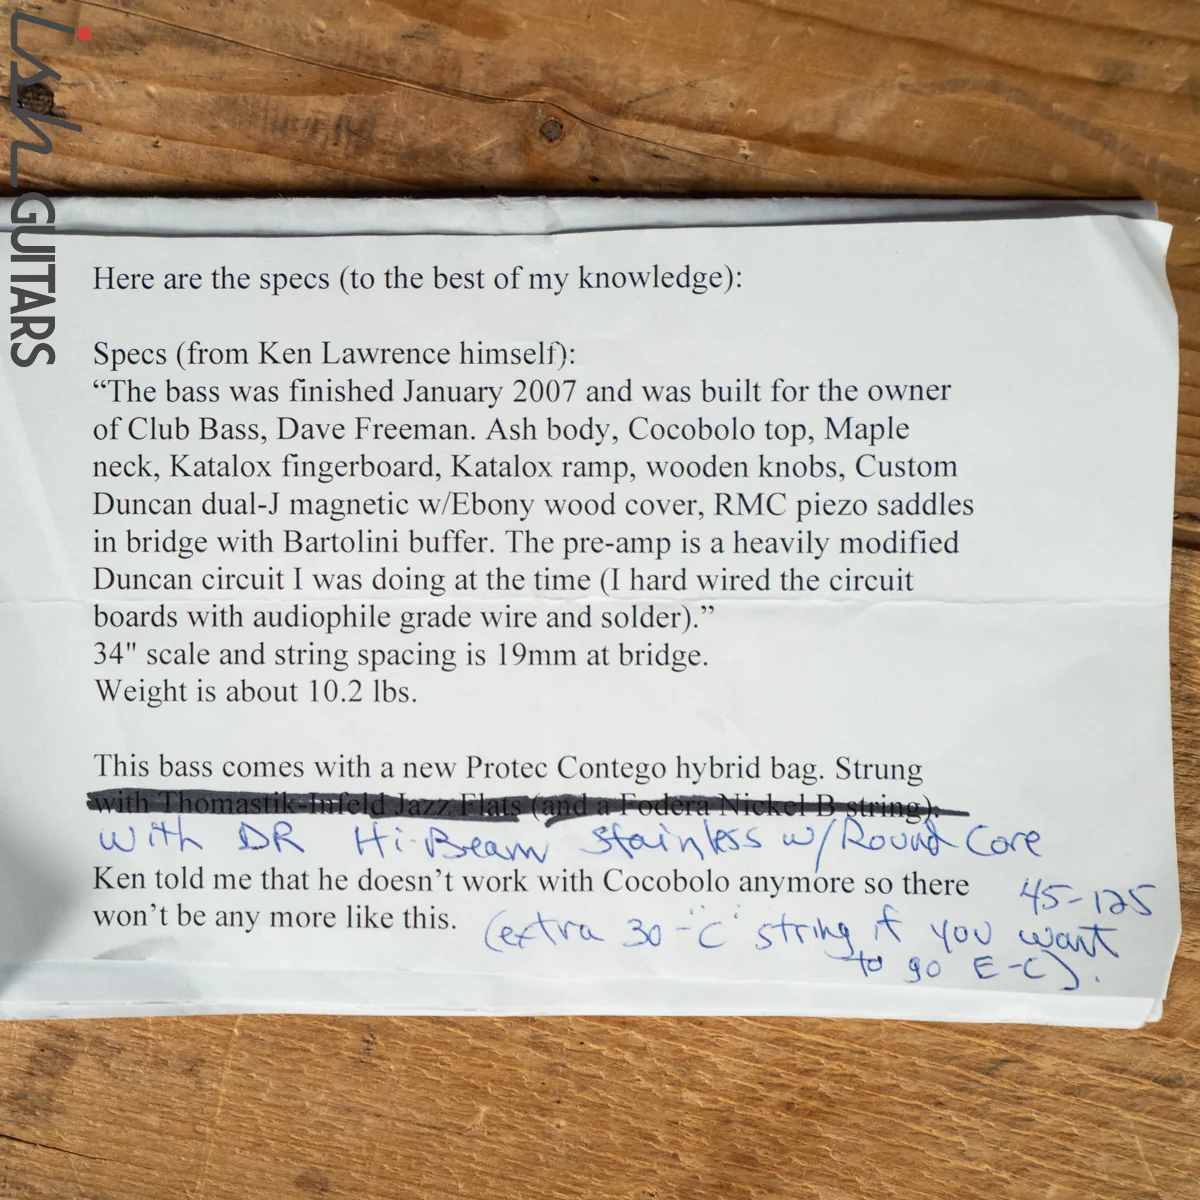 ish GUITARS
Here are the specs (to the best of my knowledge):
Specs (from Ken Lawrence himself):
“The bass was finished January 2007 and was built for the owner
of Club Bass, Dave Freeman. Ash body, Cocobolo top, Maple
neck, Katalox fingerboard, Katalox ramp, wooden knobs, Custom
Duncan dual-J magnetic w/Ebony wood cover, RMC piezo saddles
in bridge with Bartolini buffer. The pre-amp is a heavily modified
Duncan circuit I was doing at the time (I hard wired the circuit
boards with audiophile grade wire and solder).”
34" scale and string spacing is 19mm at bridge.
Weight is about 10.2 lbs.
This bass comes with a new Protec Contego hybrid bag. Strung
with Thomastik-Infeld Jazz Flats (and a Fodera Nickel B string).
with DR Hi-Beam Stainless w/Round Core
45-125
Ken told me that he doesn’t work with Cocobolo anymore so there
won’t be any more like this.
(extra 30-"C" string if you want
to go E-C).